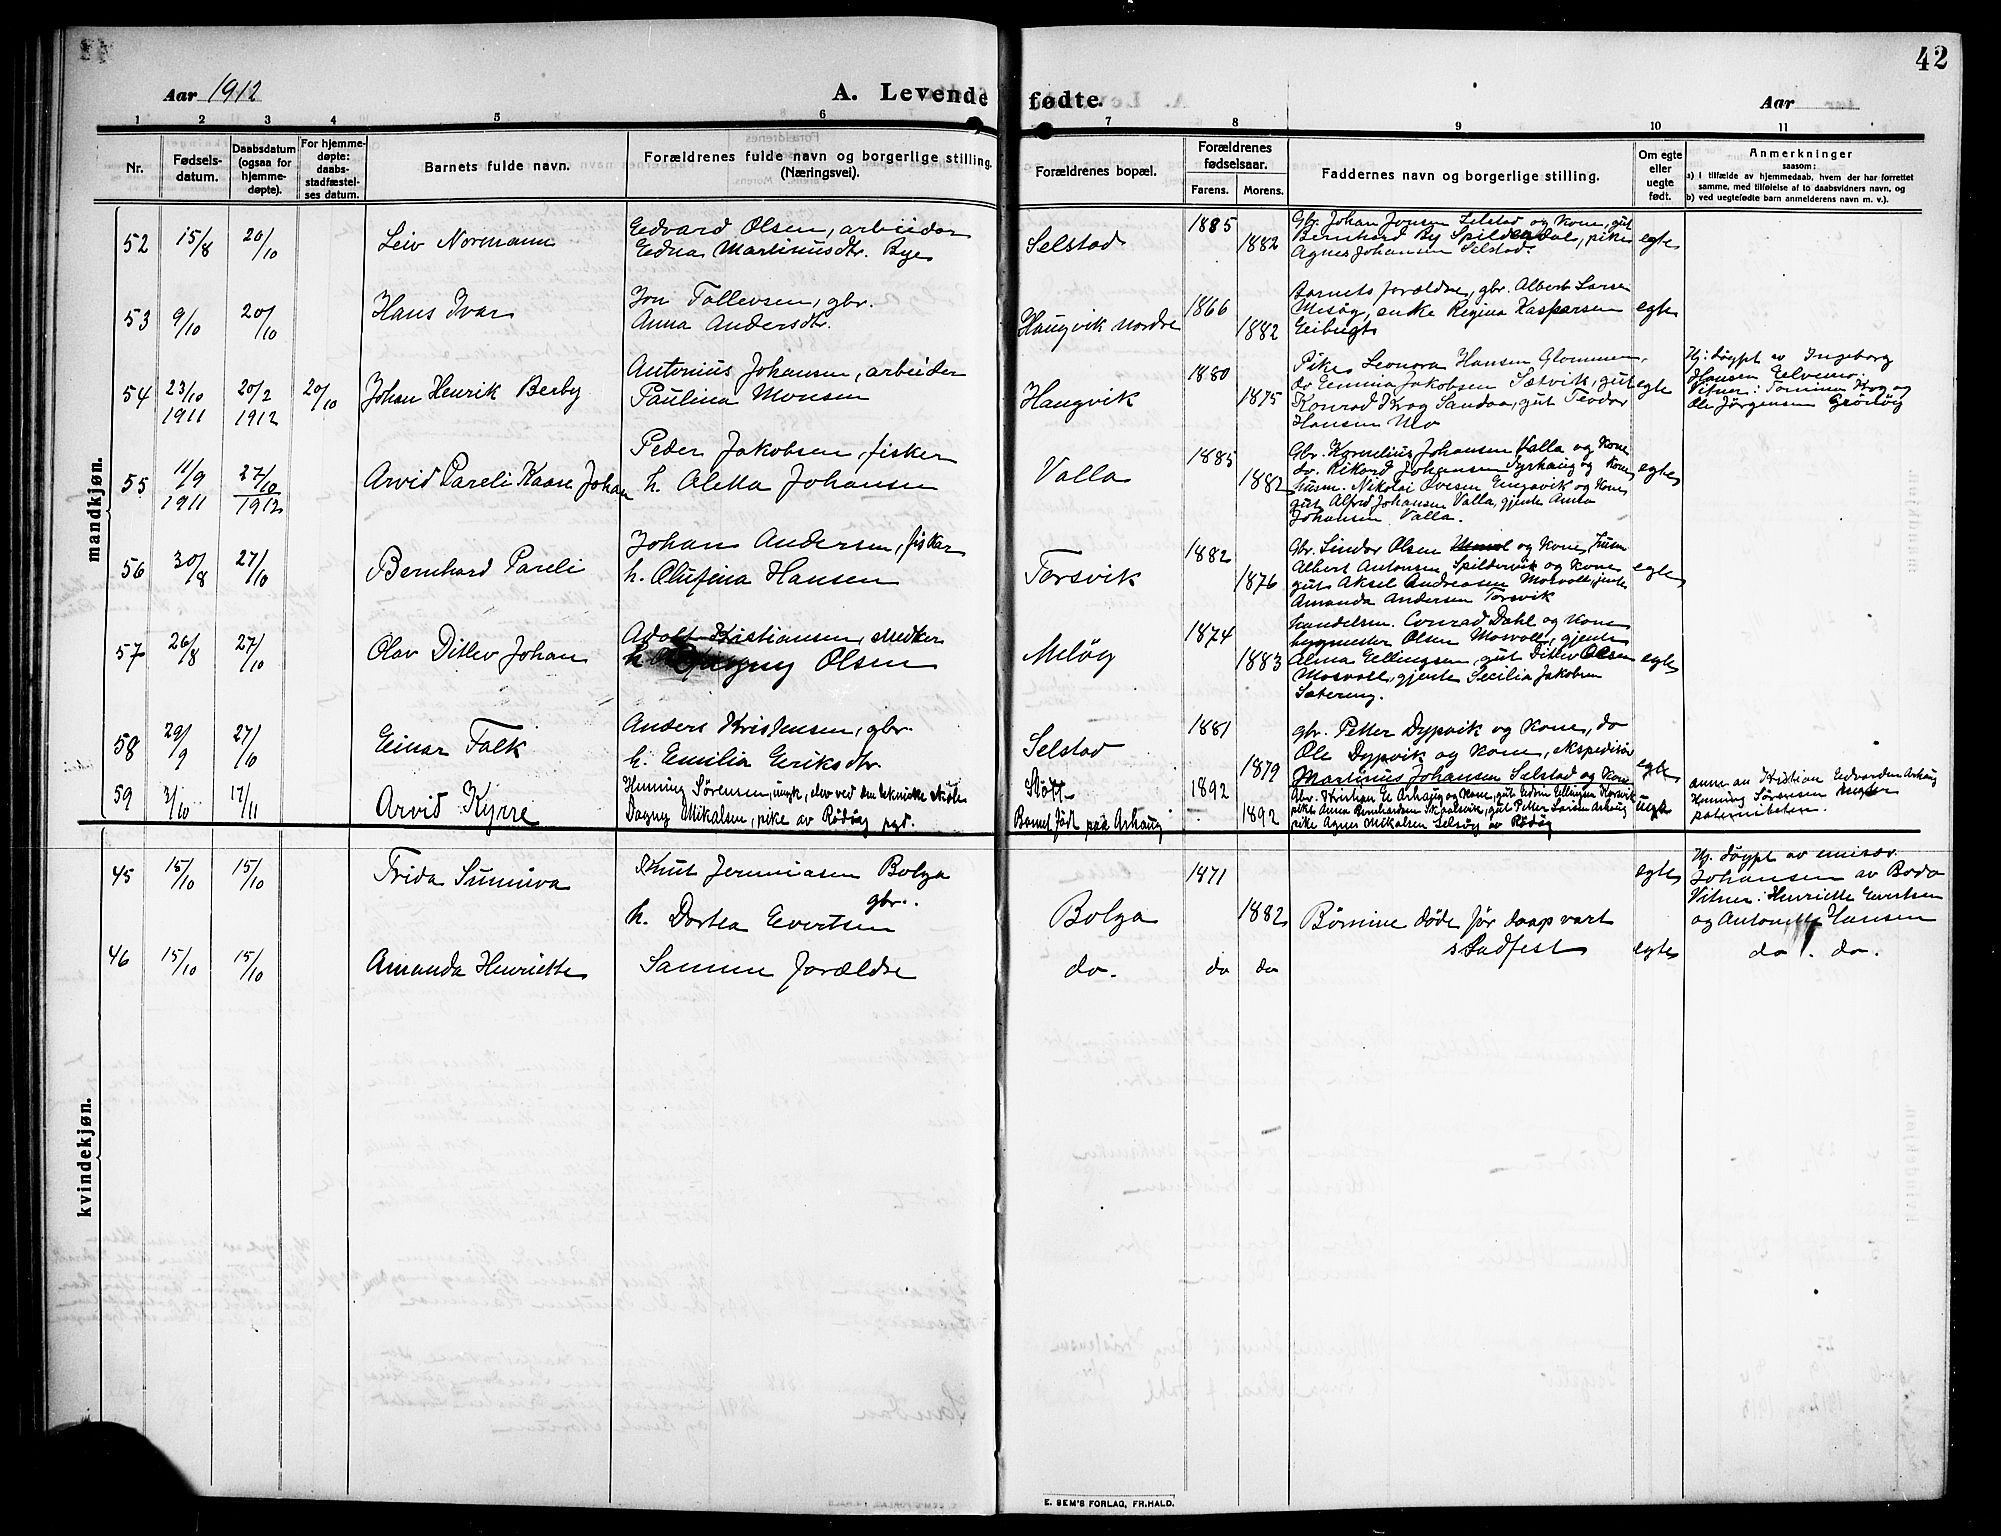 42
Aar 1912
A. Levende fødte.
Aar
1 2 3 4 5 6 7 8 9 10 11
Nr.
Fødsels-
datum.
Daabsdatum
(ogsaa for
hjemme-
døpte).
For hjemme-
døpte:
daabs-
stadfæstel-
ses datum.
Barnets fulde navn.
Forældrenes fulde navn og borgerlige stilling.
(Næringsvei).
Forældrenes bopæl.
Forældrenes
fødselsaar.
Farens. Morens.
Faddernes navn og borgerlige stilling.
Om egte
eller
uegte
født.
Anmerkninger
saasom:
a) i tilfælde av hjemmedaab, hvem der har forrettet
samme, med tilføielse af to daabsvidners navn, og
b) ved uegtefødte barn anmelderens navn m. v.).
mandkjøn.
52 15/8 20/10 Leiv Normann
Edvard Olsen, arbeider
Edna Martinusdtr. Bye
Selstad 1885 1882
Gbr. Johan Jensen Selstad og Kone, gut
Bernhard By Spilderdal, pike
Agnes Johansen Selstad.
egte
53 9/10 20/10 Hans Ivar
Jon Tollevsen, gbr.
Anna Andersdtr.
Haugvik nordre 1866 1882
Barnets forældre, gbr. Albert Larsen
Mesøy, enke Regina Kaspersen
egte
54 23/10 1911 20/2 1912 20/10 Johan Henrik Berby
Antonius Johansen, arbeider
Paulina Monsen
Haugvik 1880 1875
Pike Leonora Hansen Glommen,
do Emma Jakobsen Sætvik, gut
Konrad Krog Sandaa, gut Teodor
Hansen Mo
egte
Hj. døypt av Ingeborg
Hansen
Vitner: Tomine Krog og
Ole Jørgensen Grønøy
55 11/9 1911 27/10 1912 Arvid Pareli Kaare Johan
Peder Jakobsen, fisker
h. Aletta Johansen
Valla 1885 1882
Gbr. Kornelius Johansen Valla og Kone
do. Rikard Johansen og Kone
husm. Nikolai Ovesen Engavik og Kone
gut Alfred Johansen Valla, gjente Anna
Johansen Valla.
egte
56 30/8 27/10 Bernhard Pareli
Johan Andersen, fisker
h. Olufina Hansen
Torsvik 1882 1876
Gbr. Sindor Olsen og Kone, husm
Albert Antonsen Spildervik og Kone
gut Aksel Andreasen Mosvoll, gjente
Amanda Andersen Torsvik
egte
57 26/8 27/10 Olav Ditlev Johan
Adolf Kristiansen, snedker
h. Dagny Olsen
Meløy 1874 1883
handelsm. Conrad Dahl og Kone
bygmester Olsen Mosvoll, gjente
Alma Ellingsen, gut Ditlev Olsen
Mosvoll, gjente Secilia Jakobsen
Sætereng.
egte
58 29/9 27/10 Einar Falk
Anders Kristensen, gbr.
h. Emilia Eriksdtr.
Selstad 1881 1879
gbr. Petter Dypvik og Kone, do
Ole Dypvik og Kone, ekspeditør
Martinus Johansen Selstad og Kone
egte
59 3/10 17/11 Arvid Kyrre
Henning Sørensen, ungk., elev ved den tekniske skole
Dagny Mikalsen, pike av Rødøy pgd.
Støtt
Barnet født paa Arhaug
1892 1892
Gbr. Kristian E Arhaug og Kone, gut Edvin Ellingsen Korsvik
pike Anna Reinhardsen Skaalsvik, gut Petter Larsen Arhaug
pike Agnes Mikalsen Selsøy av Rødøy
uegte
anm. av Kristian Edvardsen Arhaug
Henning Sørensen negter
paterniteten.
kvindekjøn.
45 15/10 15/10 Frida Sunniva
Knut Jeremiasen Bolga
gbr.
h. Dortea Evertsen
Bolga 1871 1882
Børnine døde før daap vart
stadfest
egte
Hj. døypt av emisær
Johansen av Bodø
Vitner: Henriette Evertsen
og Antonette Hansen
46 15/10 15/10 Amanda Henriette
Samme forældre
do. do do
egte
do. do.
E. SEM'S FORLAG, FR.HALD.